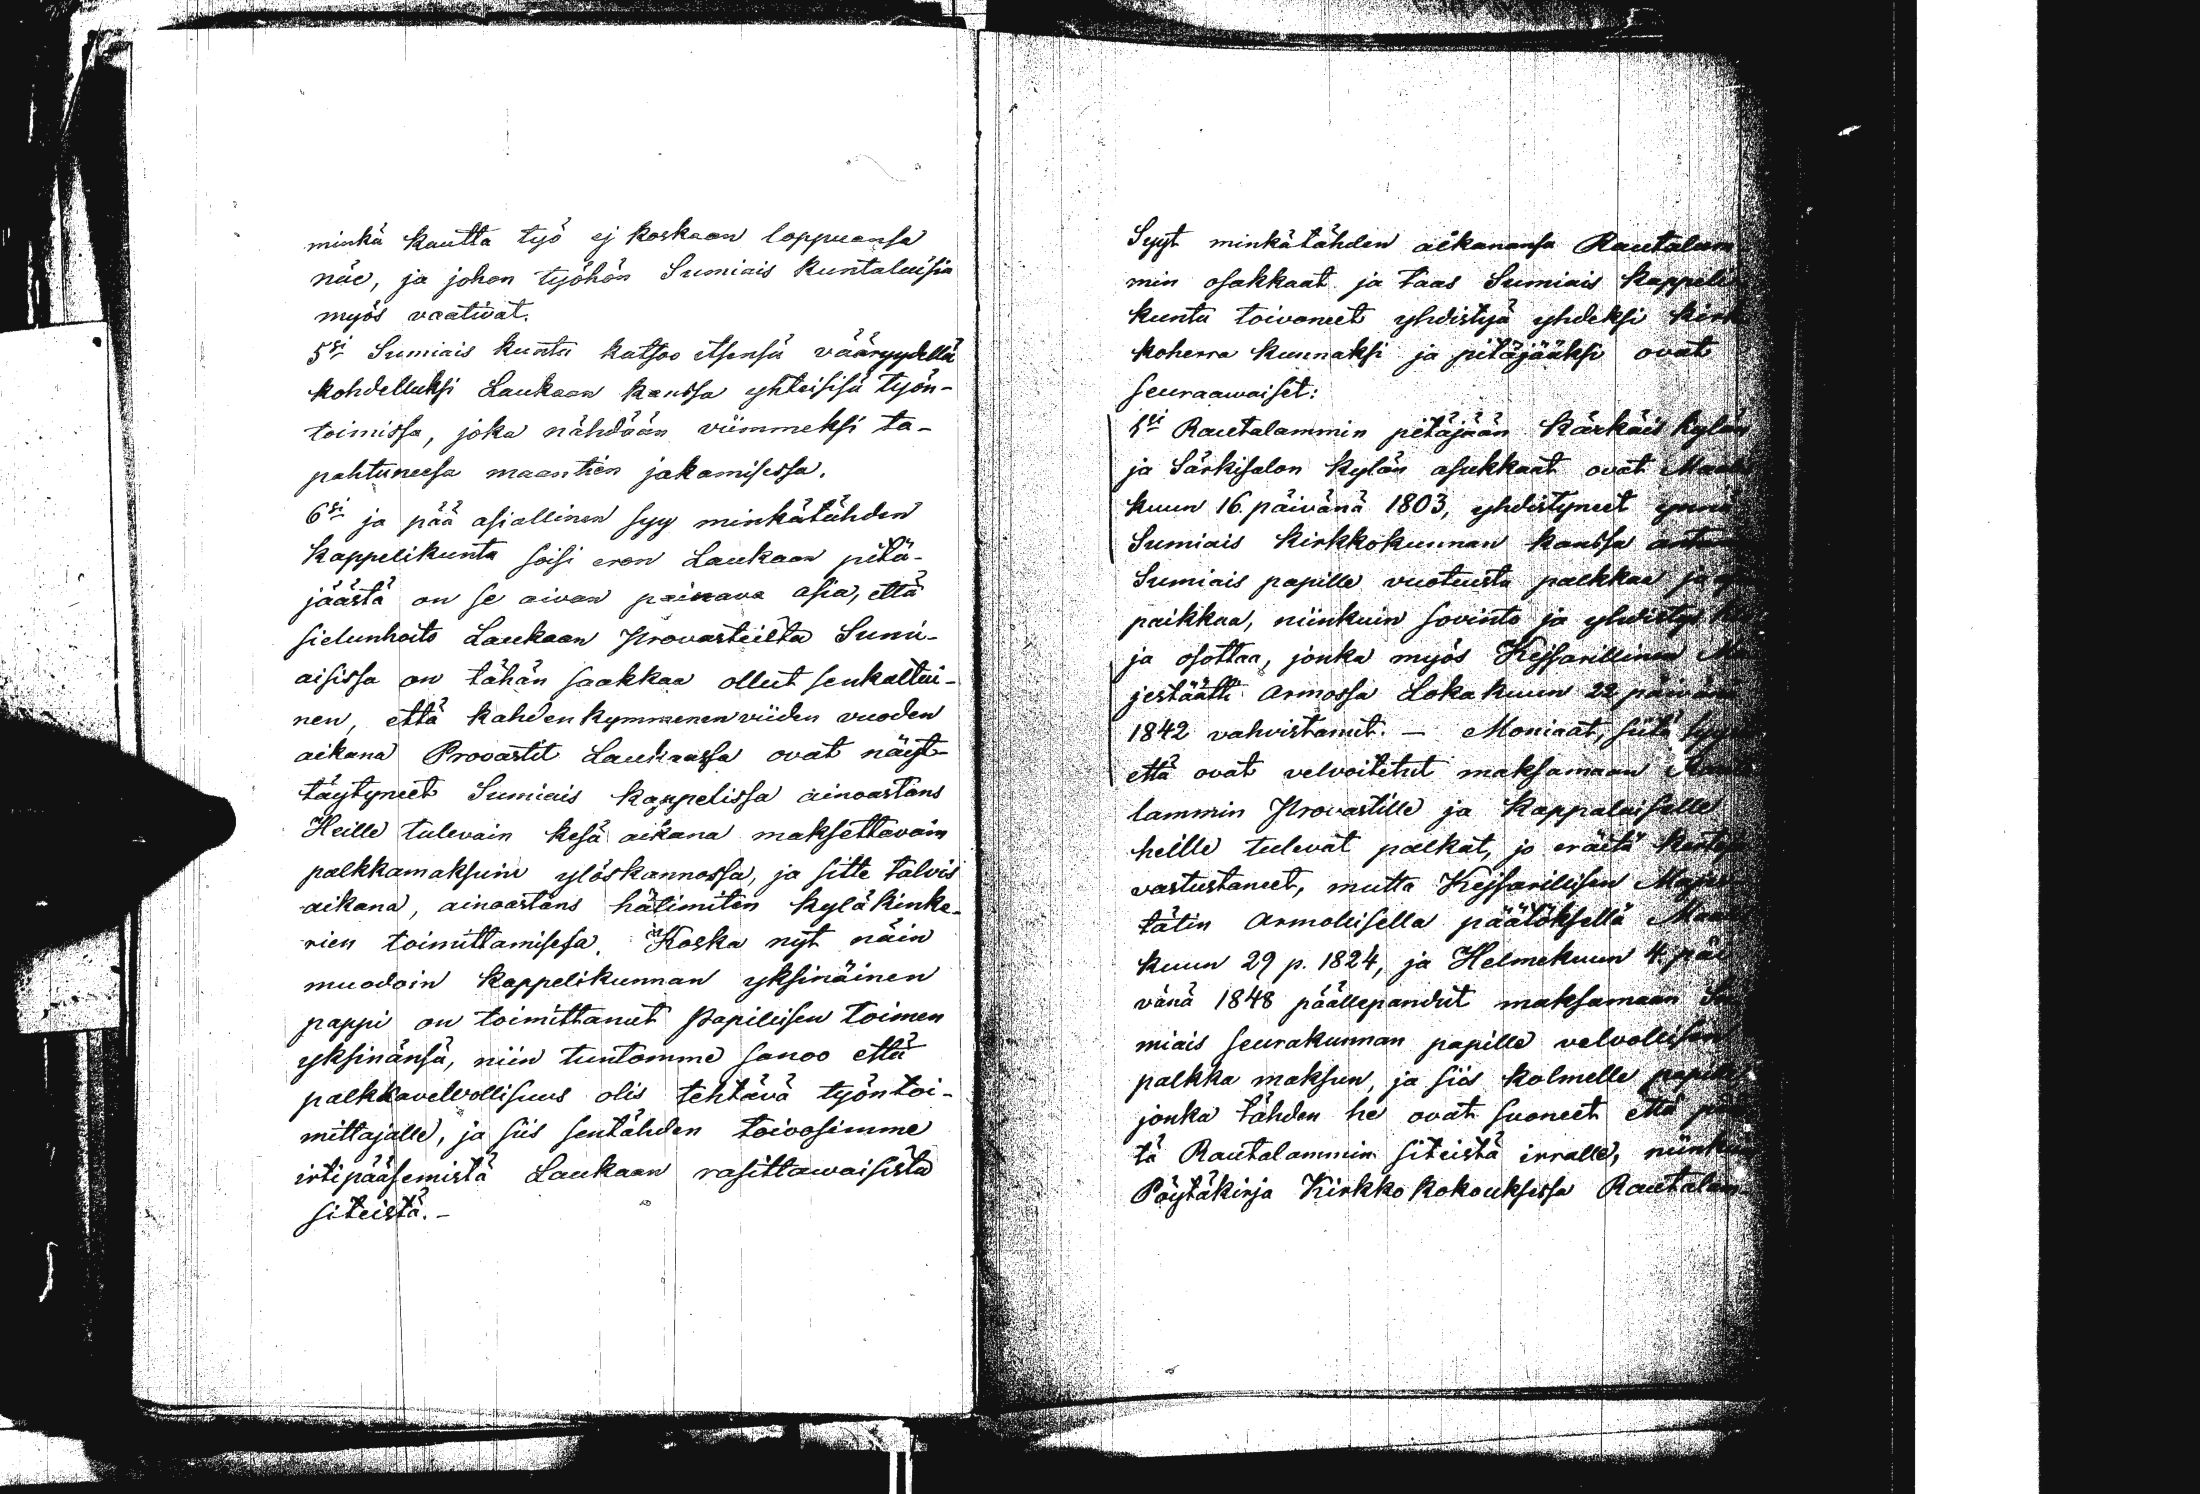 minkä kautta työ ej koskaan loppuansa
näe, ja johon työhön Sumiais kuntalaisia
myös vaativat.
5si Sumiais kunta katsoo itsensä vääryydellä
kohdelluksi Laukaan kanssa yhteisisä työn-
toimissa, joka nähdään viimmeksi ta-
pahtuneesa maantien jakamisessa.
6si ja pää asiallinen syy minkätähden
Kappelikunta soisi eron Laukaan pitä-
jäästä on se aivan painava asia, että
sielunhoito Laukaan Provasteilta Sumi-
aisissa on tähän saakkaa ollut senkaltai-
nen, että kahdenkymmenen viiden vuoden
aikana Provastit Laukaassa ovat näyt-
täytyneet Sumiais kappelissa ainoastans
Heille tulevain kesä aikana maksettavain
palkkamaksuin ylöskannossa, ja sitte talvis
aikana, ainoastans hätimiten kyläkinke-
rien toimittamisesa. Koska nyt näin
muodoin kappelikunnan yksinäinen
pappi on toimittanut papillisen toimen
yksinänsä, niin tuntomme sanoo että
palkkavelvollisuus olis tehtävä työntoi-
mittajalle, ja siis sentähden toivosimme
irtipääsemistä Laukaan rasittawaisista
siteistä. –
Syyt minkätähden aikanansa Rautalam-
min osakkaat ja taas Sumiais Kappeli
kunta toivoneet yhdistyä yhdeksi kirk
koherra kunnaksi ja pitäjääksi ovat
seuraawaiset:
1si Rautalammin pitäjään Kärkäis kylän
ja Särkisalon kylän asukkaat ovat
kuun 16 päivänä 1803, yhdistyneet ynnä
Sumiais kirkkokunnan kanssa
Sumiais papille vuotuista palkkaa ja
paikkaa, niinkuin sovinto ja yhdistys
ja osottaa, jonka myös Kejsarillinen
jestäätti armossa Lokakuun 22 päivänä
1842 vahvistanut. – Moniaat, siitä syystä
että ovat velvoitetut maksamaan
lammin Provastille ja Kappalaiselle
heille tulevat palkat, jo eräitä kertoja
vastustaneet, mutta Kejsarillisen Majes
tätin armollisella päätöksellä
kuun 29 p. 1824, ja Helmekuun 4 päi
vänä 1848 päällepandut maksamaan Su
miais seurakunnan papille velvollisen
palkka maksun, ja siis kolmelle papille
jonka tähden he ovat suoneet että pääs
tä Rautalammin siteistä irralle, niinkuin
Pöytäkirja Kirkko kokouksessa Rautalam-